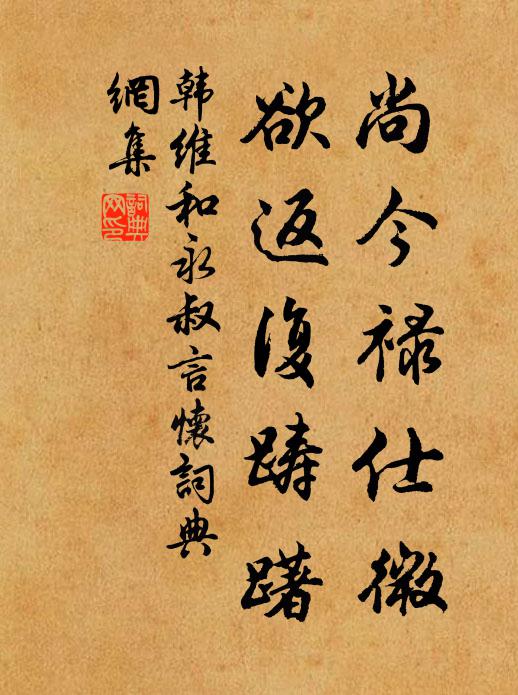 尚今禄仕微
欲返復踌躇
韩维和永叔言懷詞典
網集
詞典网印